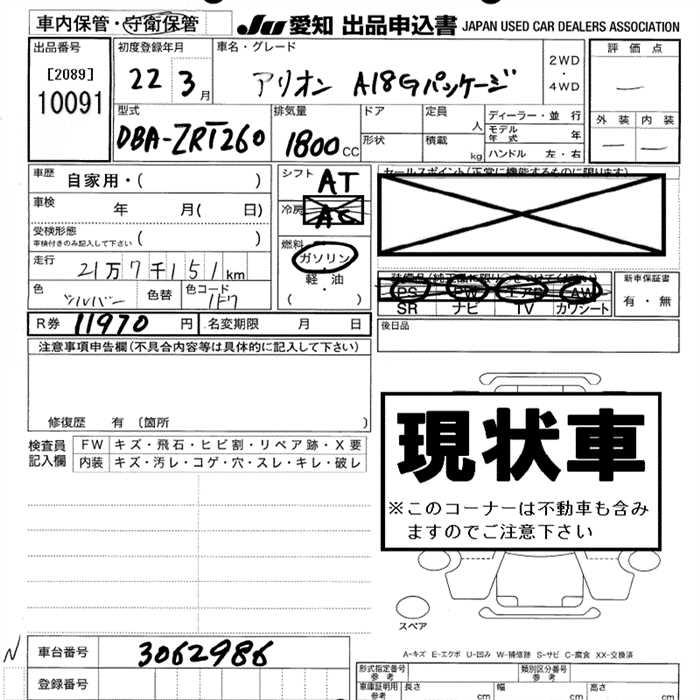 車内保管・守衛保管
JU 愛知 出品申込書 JAPAN USED CAR DEALERS ASSOCIATION
出品番号
[2089]
10091
初度登録年月
22 3月
車名・グレード
アリオン A18Gパッケージ
2WD
・
4WD
評価点
—
外装 内装
— —
型式
DBA-ZRT260
排気量
1800 CC
ドア
形状
定員 人
積載 kg
ディーラー・並行
モデル年式 年
ハンドル 左・右
車歴 自家用・( )
車検 年 月( 日)
受検形態
車検付きのみ記入して下さい ( )
走行 21万7千151km
色 シルバー 色替 色コード 1F7
シフト AT
冷房 AC
燃料
ガソリン
軽・油
( ・ )
セールスポイント(正常に機能するものに限ります)
PS PW エアB AW
SR ナビ TV カワシート
新車保証書
有・無
R券 11970 円 名変期限 月 日
後日品
注意事項申告欄(不具合内容等は具体的に記入して下さい)
修復歴 有〔箇所 〕
検査員記入欄
FW キズ・飛石・ヒビ割・リペア跡・X要
内装 キズ・汚レ・コゲ・穴・スレ・キレ・破レ
現状車
※このコーナーは不動車も含み
ますのでご注意下さい
スペア
A-キズ E-エクボ U-凹み W-補修跡 S-サビ C-腐食 XX-交換済
N
車台番号 3062986
登録番号
形式指定番号 類別区分番号
車庫証明用参考 長さ cm 幅 cm 高さ cm